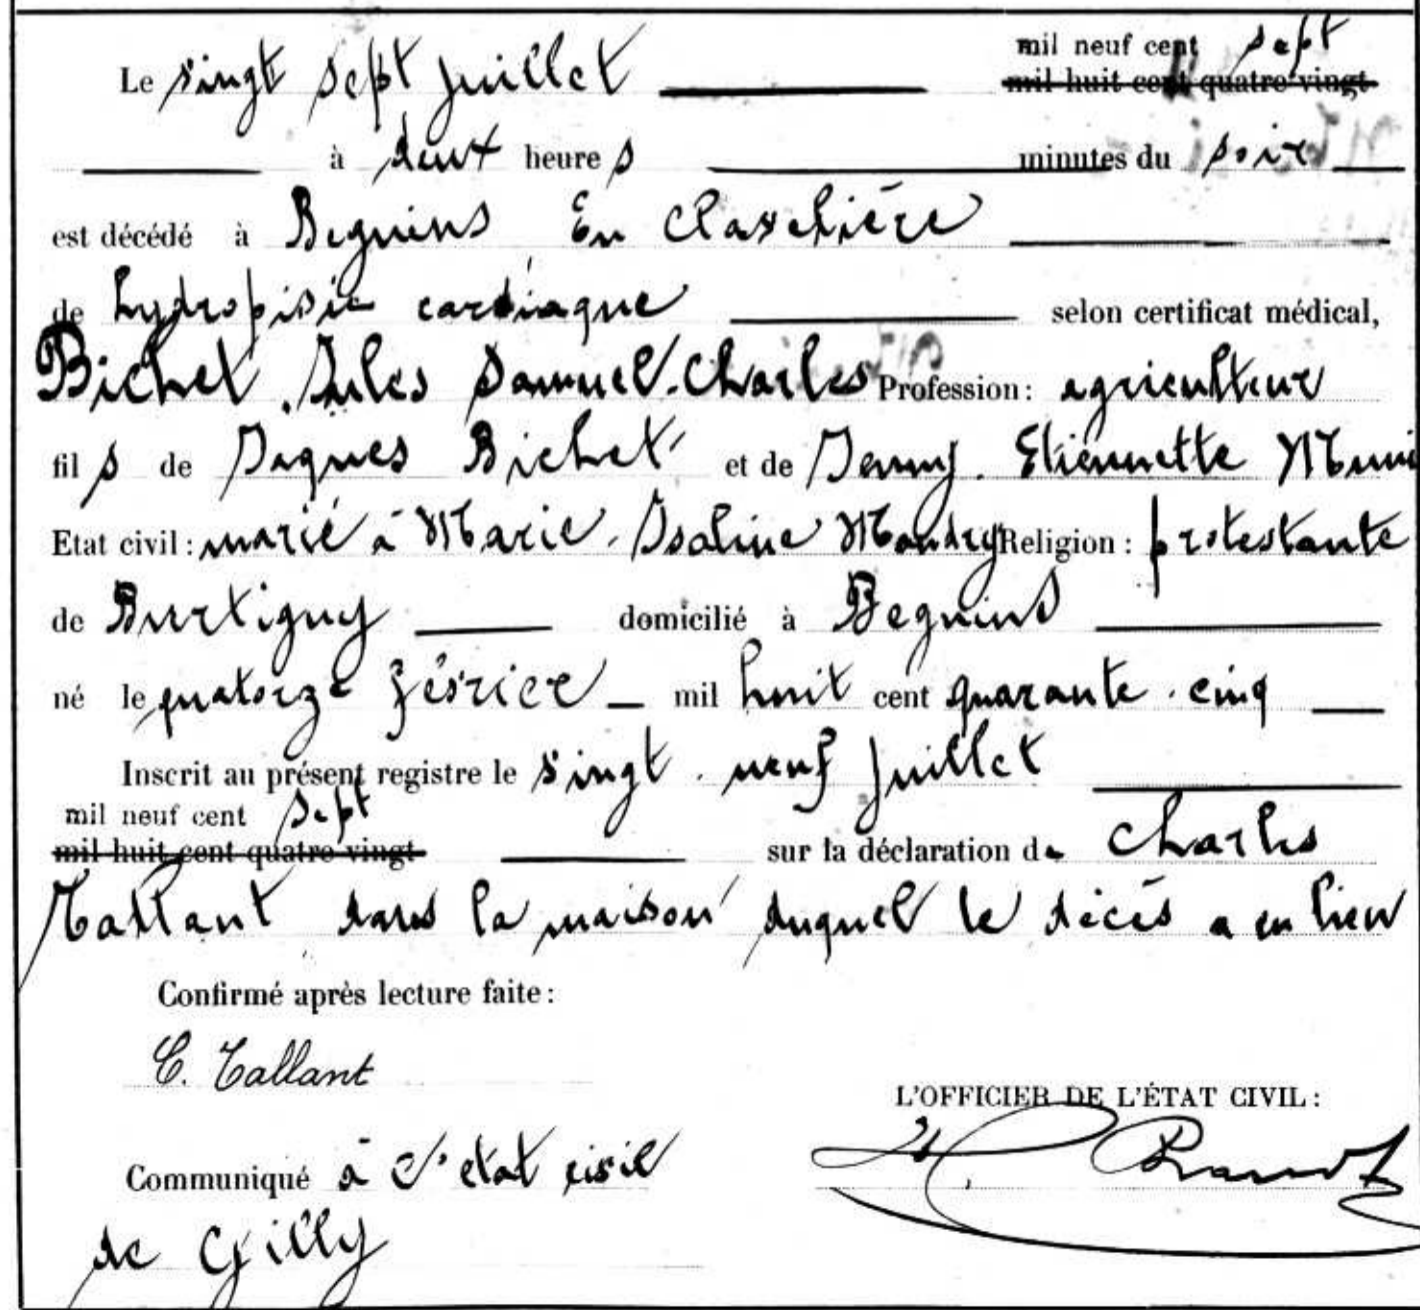 Le vingt sept juillet mil neuf cent sept
mil huit cent quatre-vingt
à deux heures minutes du soir
est décédé à Begnins En Clavelière
de hydropisie cardiaque selon certificat médical,
Bichet. Jules Samuel. Charles Profession: agriculteur
fils de Jaques Bichet et de Jenny. Etiennette
Etat civil: marié à Marie. Isaline Mandry Religion: protestante
de Burtigny domicilié à Begnins
né le quatorze février mil huit cent quarante. cinq
Inscrit au présent registre le vingt. neuf juillet
mil neuf cent sept
mil huit cent quatre-vingt sur la déclaration de Charles
Tallant dans la maison duquel le décès a eu lieu
Confirmé après lecture faite:
C. Tallant
L'OFFICIER DE L'ÉTAT CIVIL:
Communiqué à l'etat civil
de Gilly